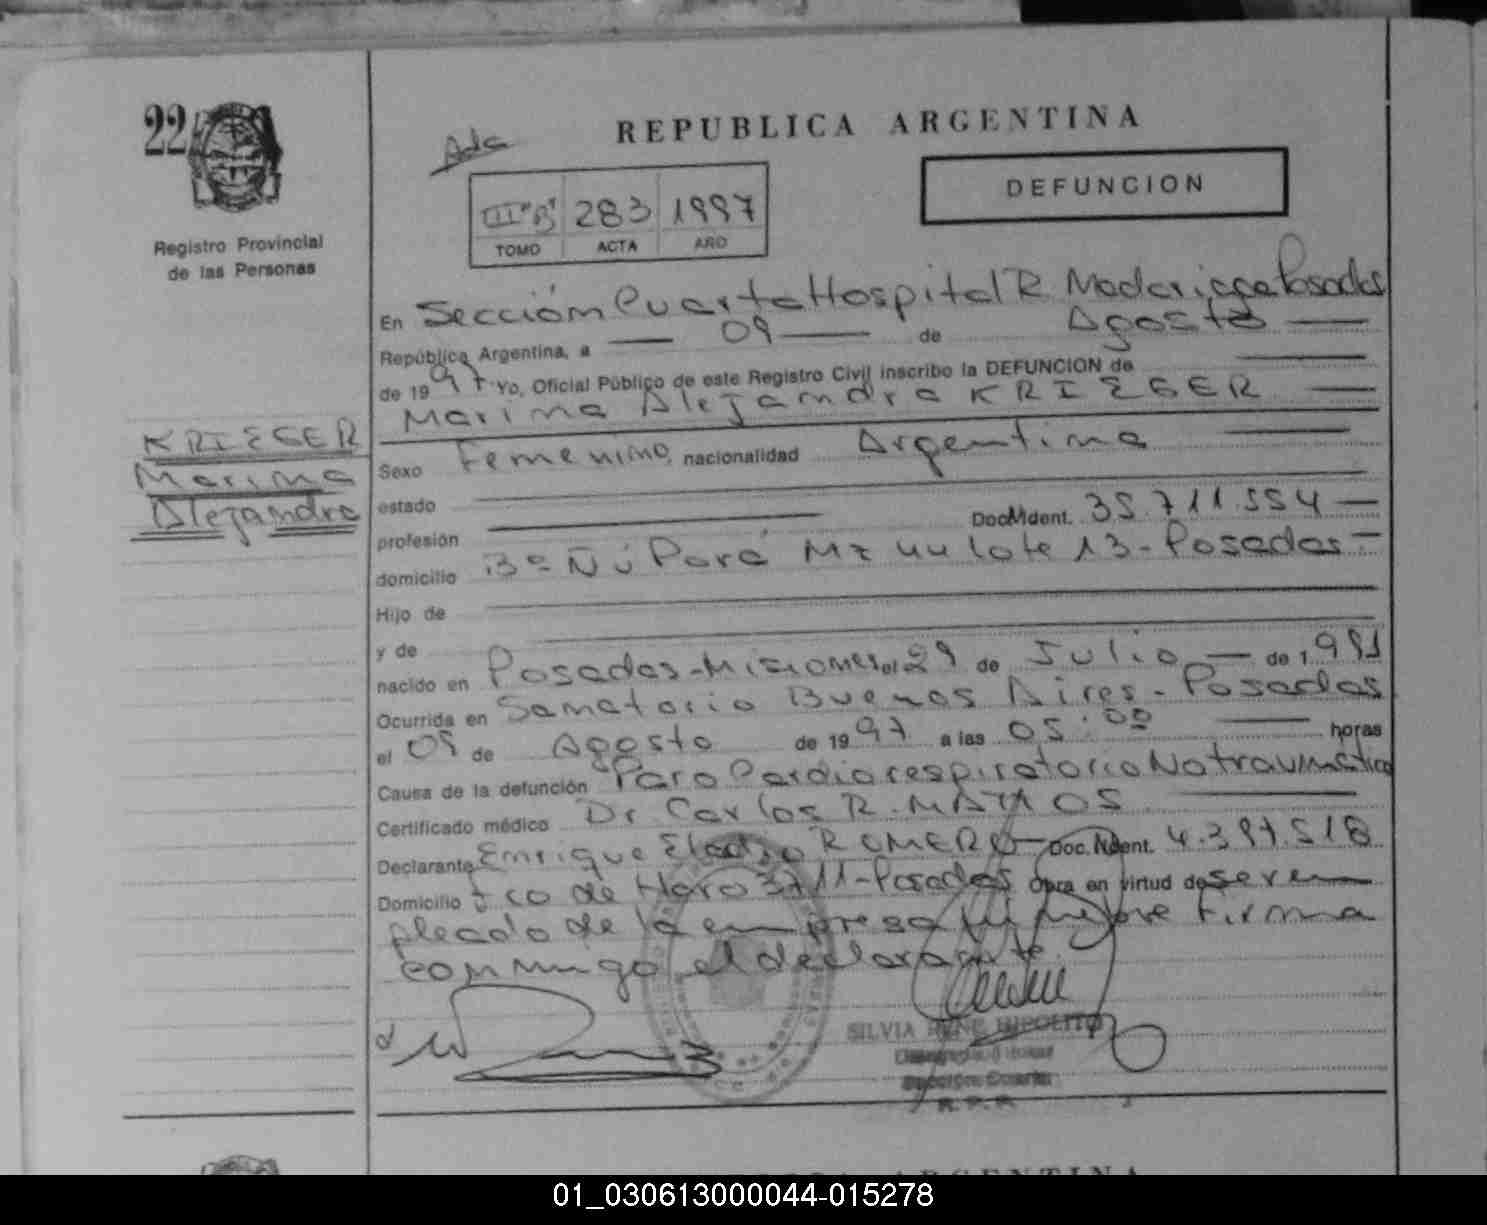 22
Registro Provincial
de las Personas
REPUBLICA ARGENTINA
DEFUNCION
283 1997
TOMO ACTA AÑO
En Sección Cuarta Hospital R. Madariaga Posadas
República Argentina, a 09 de Agosto
de 1997 Yo, Oficial Público de este Registro Civil inscribo la DEFUNCION de
Marina Alejandra KRIEGER
KRIEGER
Marina
Alejandra
Sexo Femenino, nacionalidad Argentina
estado
profesión Doc. Ident. 35.711.554
domicilio B° Ñú Porá Mz 44 lote 13 - Posadas
Hijo de
y de
nacido en Posadas - Misiones el 29 de Julio de 1991
Ocurrida en Sanatorio Buenos Aires - Posadas
el 09 de Agosto de 1997 a las 05:00 horas
Causa de la defunción Paro Cardiorespiratorio No traumático
Certificado médico Dr. Carlos R. MATTOS
Declarante Enrique ROMERO Doc. Ident. 4.397.518
Domicilio Fco de Haro 3711 - Posadas Obra en virtud de ser em
pleado de la empresa fúnebre firma
conmigo el declarante.
SILVIA RENE HIPOLITO
Sección Cuarta
R.P.P.
ARGENTINA
01_030613000044-015278